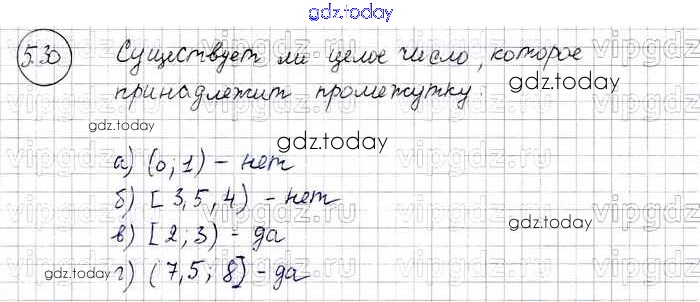 gdz.today
5.30 Существует ли целое число, которое
принадлежит промежутку:
gdz.today
gdz.today
gdz.today
а) (0; 1) - нет
б) [3,5, 4) - нет
gdz.today
в) [2; 3) - да
gdz.today
г) (7,5; 8] - да
vipgdz.ru
vipgdz.ru
vipgdz.ru
vipgdz.ru